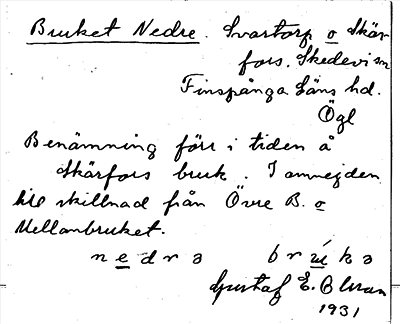 Bruket Nedre. Svartorp o Skär
fors. Skedevi sn
Finspånga Läns hd.
Ögl
Benämning förr i tiden å
Skärfors bruk. I omnejden
till skillnad från Övre B. o
Mellanbruket.
nedra brúka
Gustaf E. Blman
1931